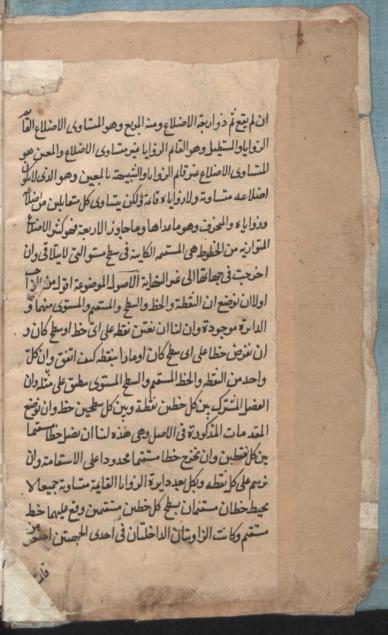 ٣
ان لم يقع ثم ذو اربعة الاضلاع ومنه المربع وهو المتساوى الاضلاع القائم
الزوايا والمستطيل وهو القائم الزوايا غير متساوى الاضلاع والمعين وهو
المتساوى الاضلاع غير قائم الزوايا والشبيهة بالمعين وهو الذى لا يكون
اضلاعه متساوية ولا زواياه قائمة ولكن يتساوى كل متقابلين من اضلاعه
وزواياه والمنحرف وهو ما عداها وما جاوز الاربعة فهو كثير الاضلاع
المتوازيه من الخطوط هى المستقيمة الكاينة فى سطح مستو التى لا يتلاقى وان
اخرجت فى جهاتها الى غير النهاية الاصول الموضوعة اقول من الواجب
اولا ان نوضع ان النقطة والخط والسطح والمستقيم والمستوى منهما و
الدايرة موجودة وان لنا ان نعين نقطة على اى خط او سطح كان و
ان نفرض خطا على اى سطح كان او مارا بنقطه كيف اتفق وان كل
واحد من النقطه والخط المستقيم والسطح المستوى ينطبق على مثله وان
الفصل المشترك بين كل خطين نقطة وبين كل سطحين خط وان نوضع
المقدمات المذكورة فى الاصل وهى هذه لنا ان نصل خطا مستقيما
بين كل نقطتين وان نخرج خطا مستقيما محدودا على الاستقامة وان
نرسم على كل نقطه وبكل بعد دايرة الزوايا القايمة متساوية جميعا لا
يحيط خطان مستقيمان بسطح كل خطين مستقيمين وقع عليهما خط
مستقيم وكانت الزاويتان الداخلتان فى احدى الجهتين اصغر من